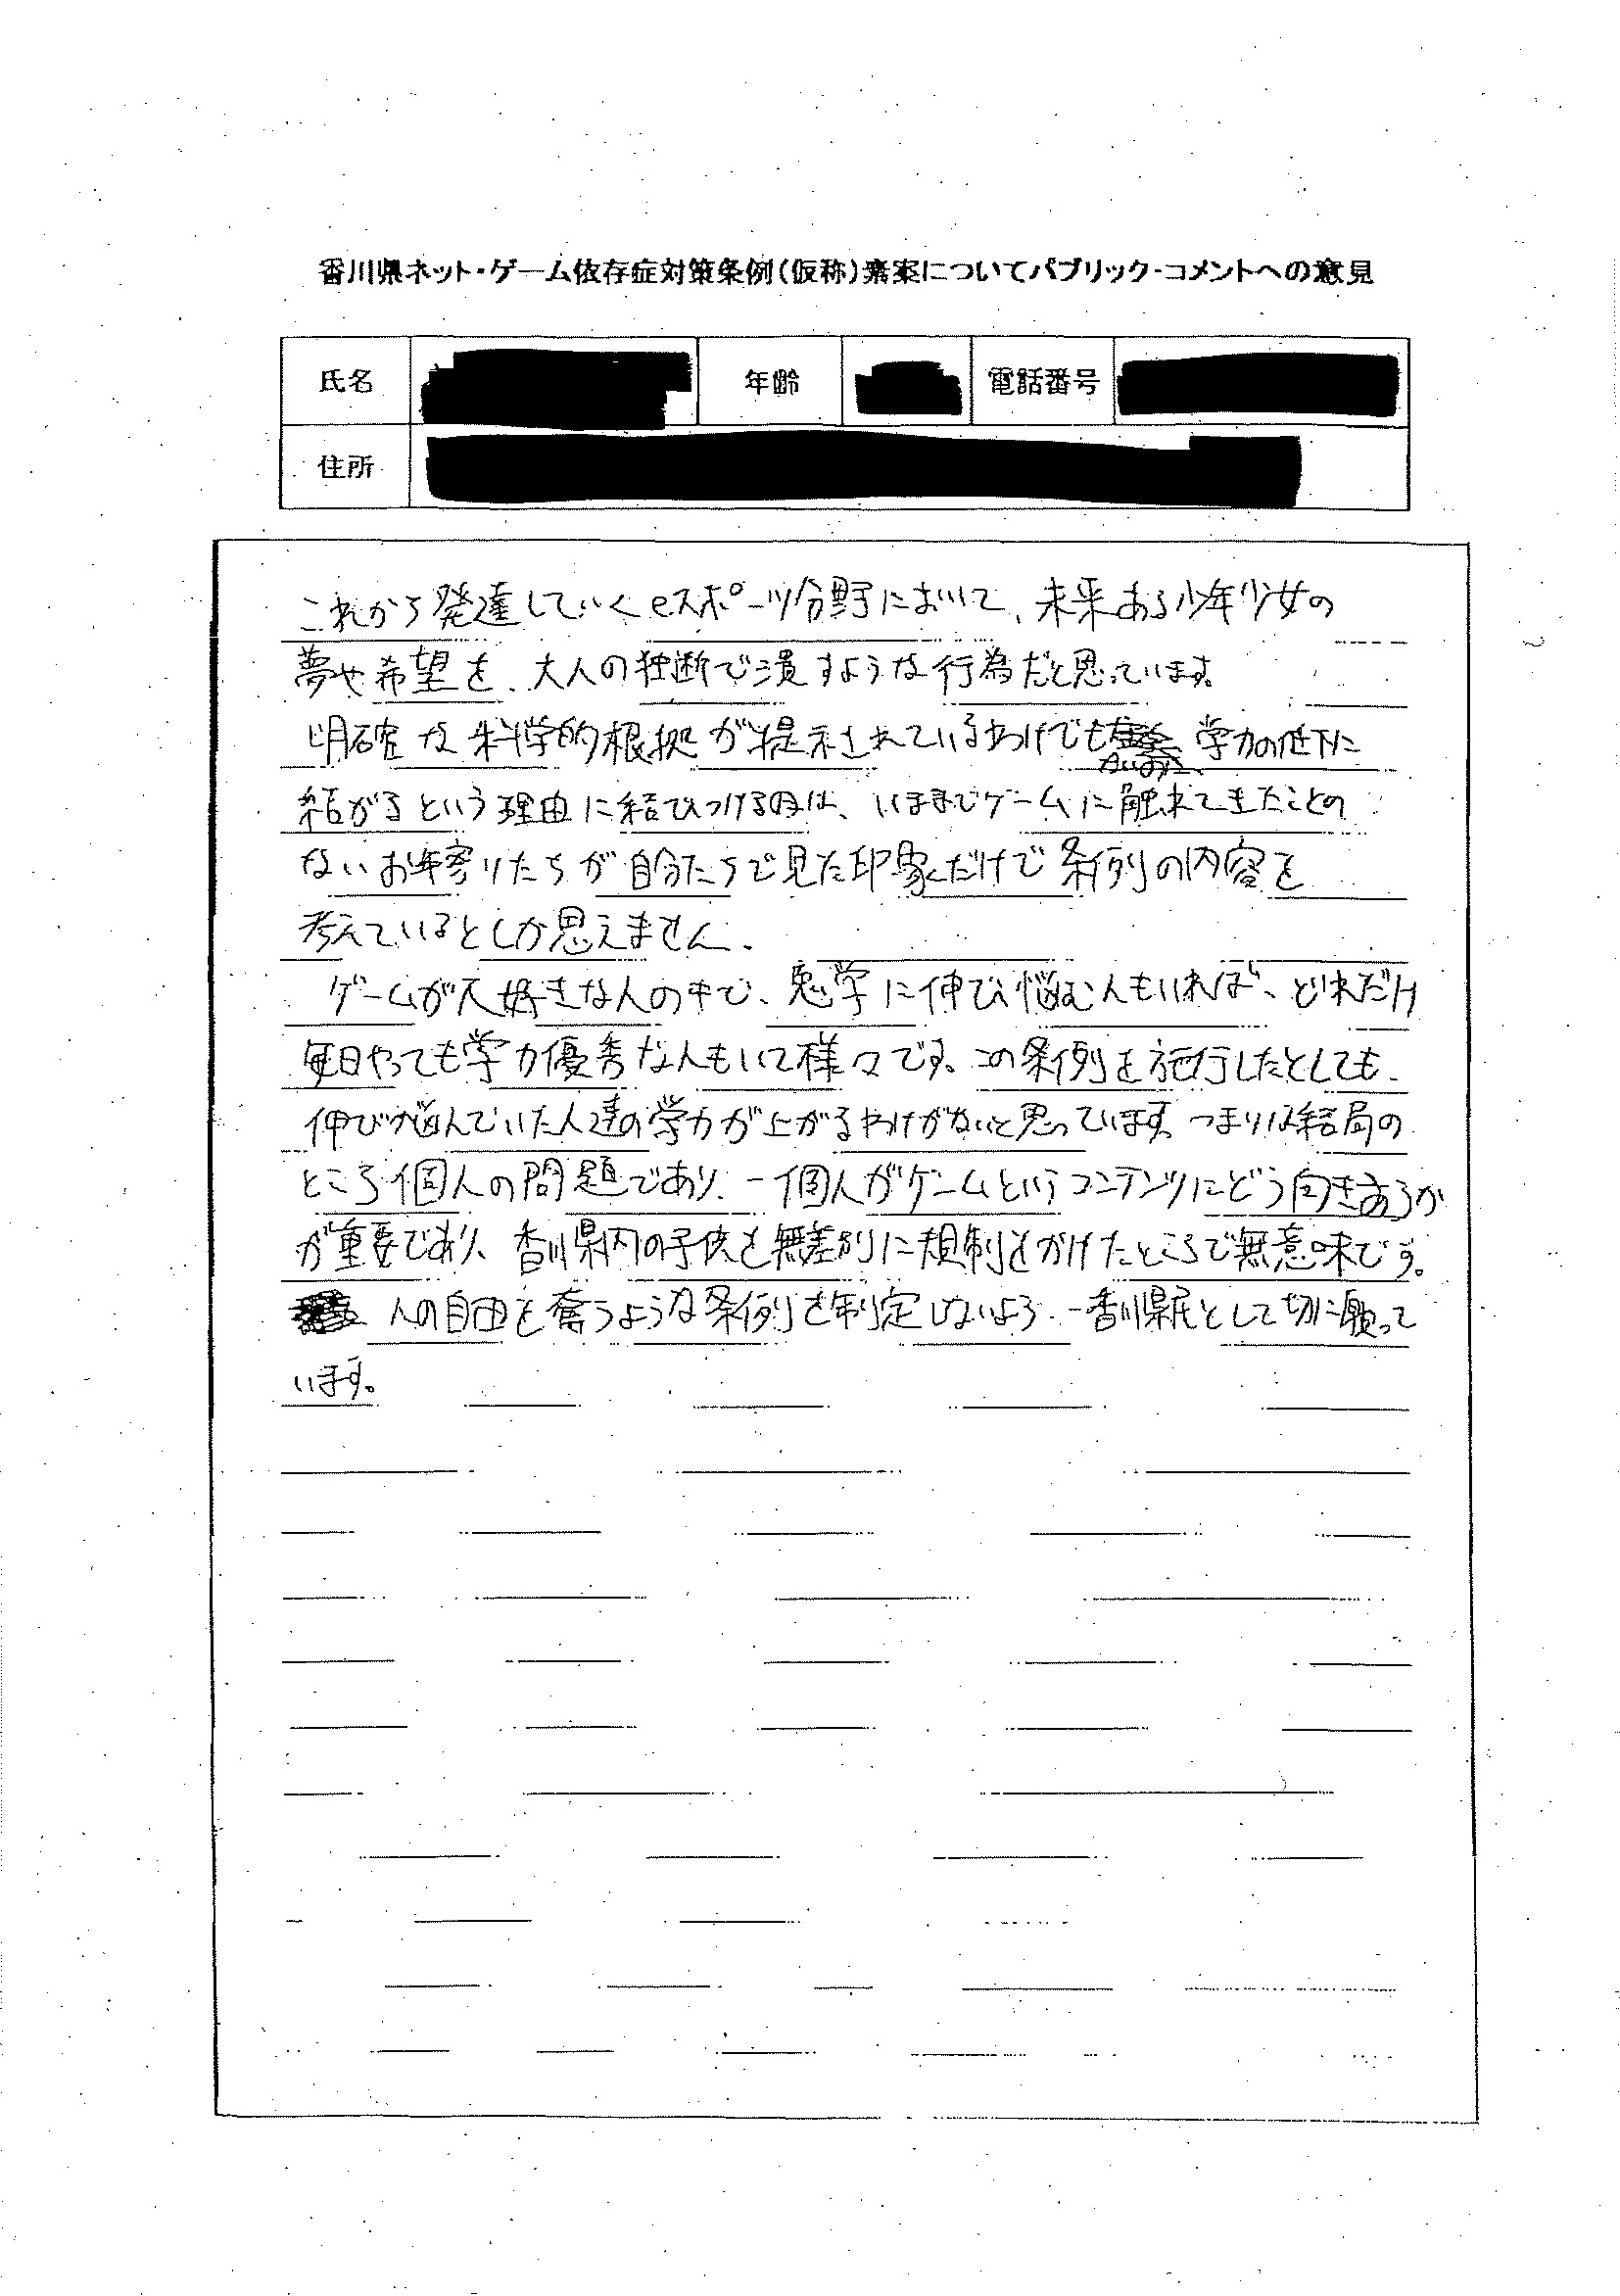 香川県ネット・ゲーム依存症対策条例(仮称)素案についてパブリック・コメントへの意見
氏名 年齢 電話番号
住所
これから発達していくeスポーツ分野において、未来ある少年少女の
夢や希望を、大人の独断で潰すような行為だと思っています。
明確な科学的根拠が提示されているわけでもない 学力の低下に
結がるという理由に結びつけるのは、いままでゲームに触れてきたことの
ないお年寄りたちが自分たちで見た印象だけで条例の内容を
考えているとしか思えません.
ゲームが大好きな人の中で、勉学に伸び悩む人もいれば、どれだけ
毎日やっても学力優秀な人もいて様々です。この条例を施行したとしても、
伸び悩んでいた人達の学力が上がるわけがないと思っています。つまりは結局の
ところ個人の問題であり、一個人がゲームというコンテンツにどう向きあるか
が重要であり、香川県内の子供を無差別に規制をかけたところで無意味です。
人の自由を奪うような条例を制定しないよう、一香川県民として切に願って
います。